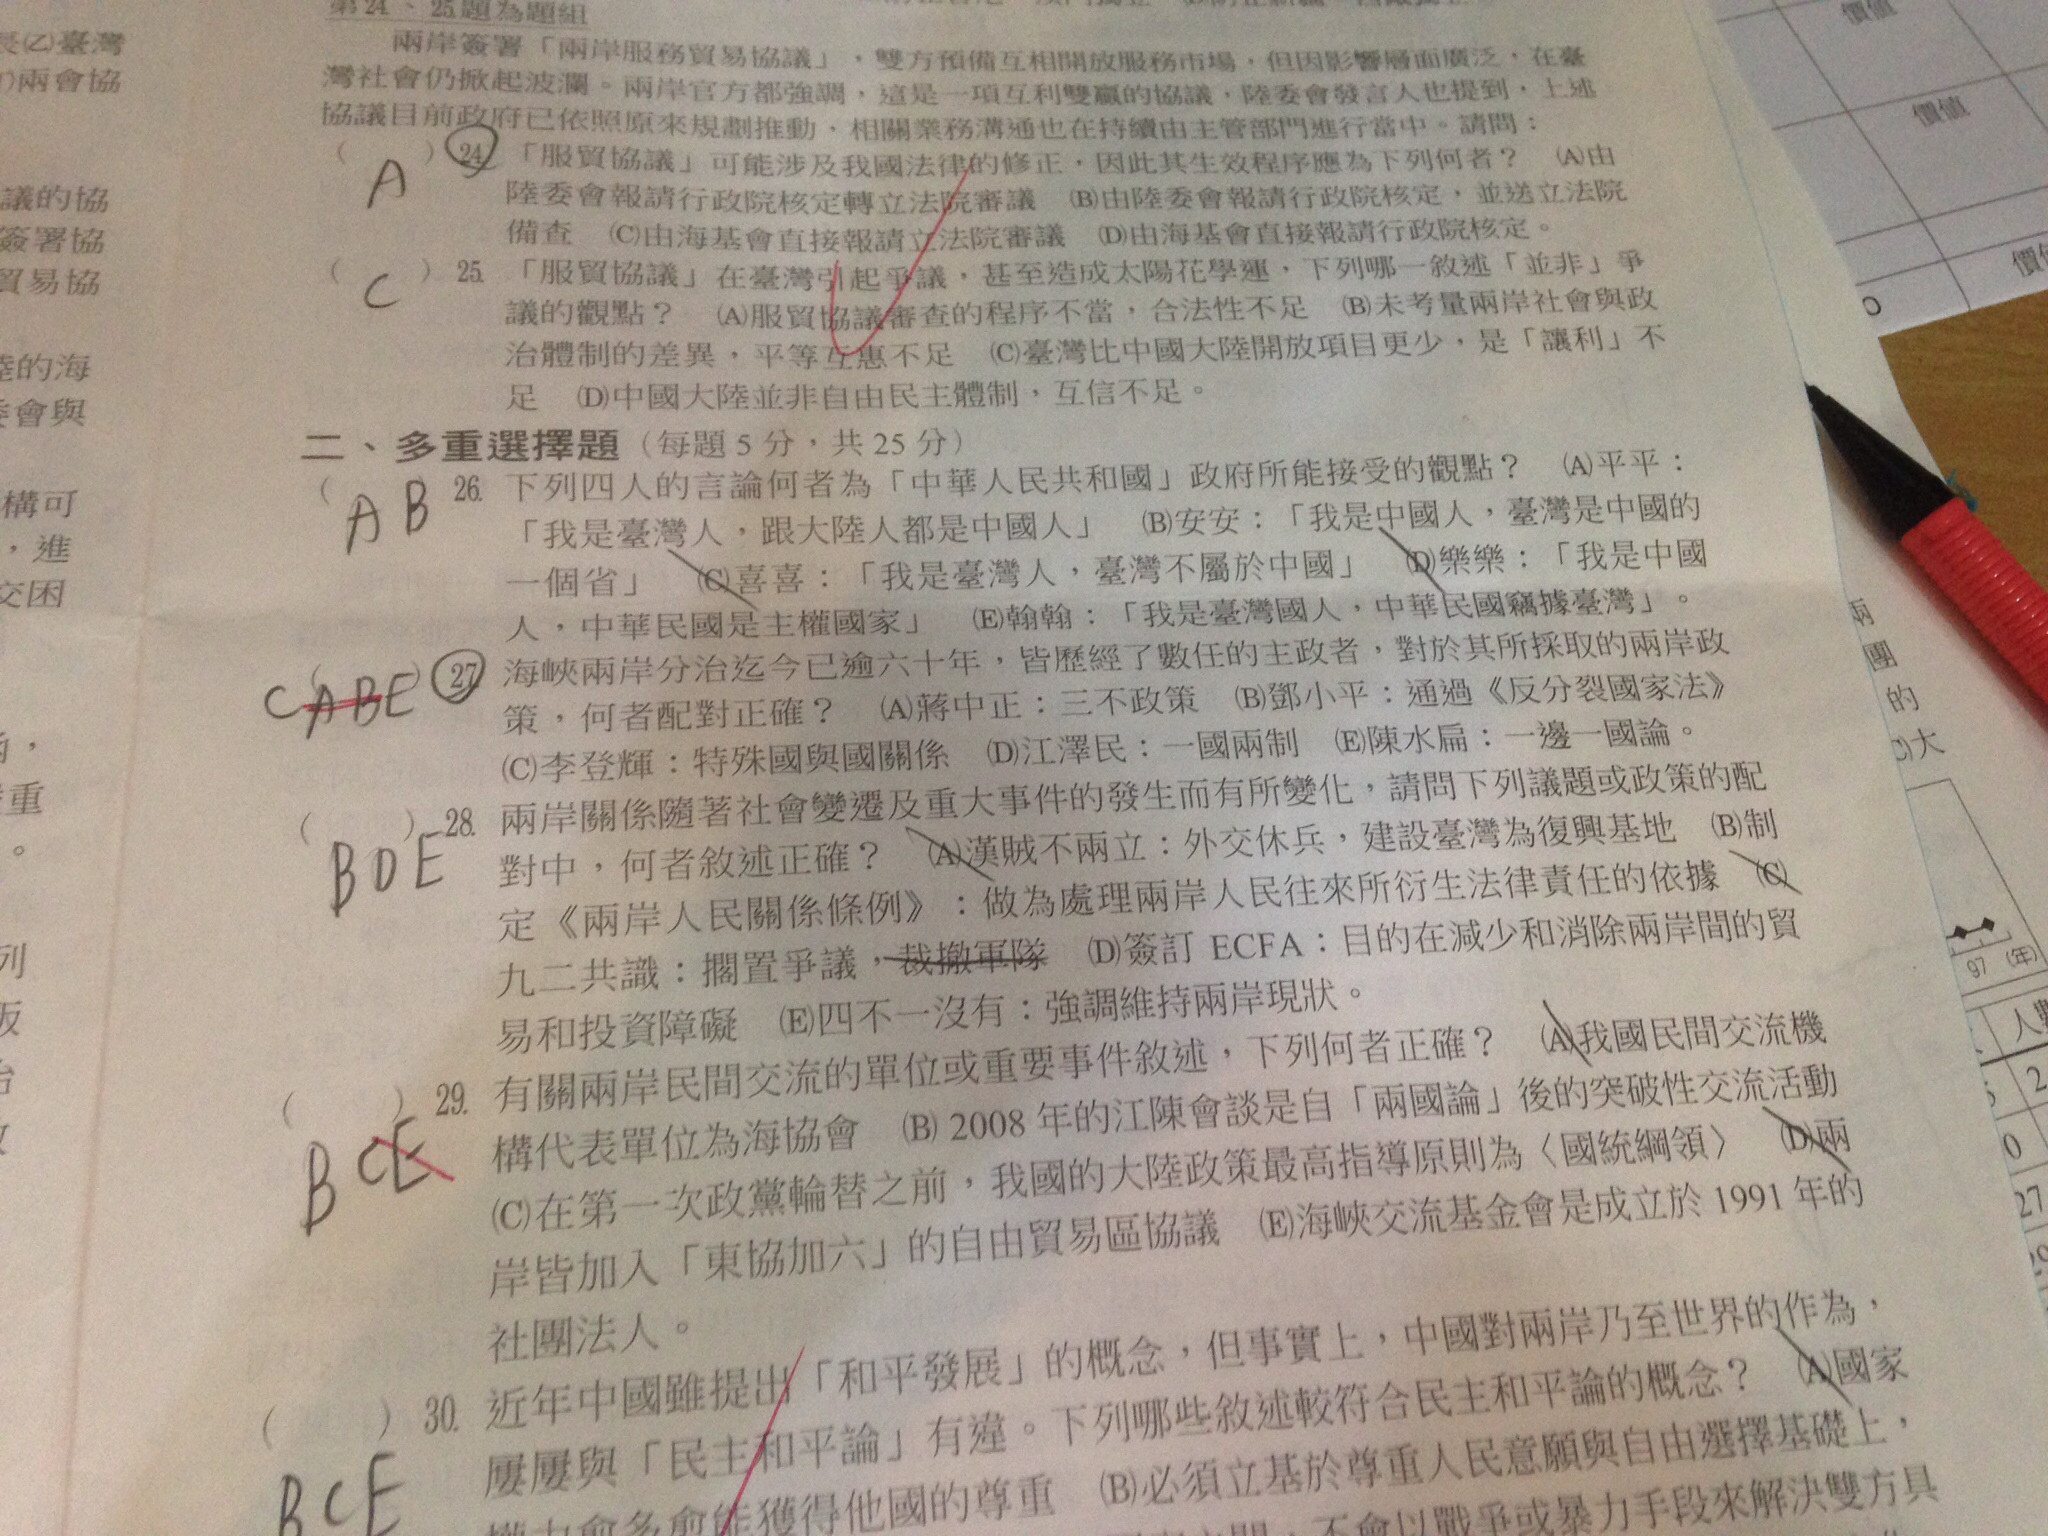 第24、25題為題組
兩岸簽署「兩岸服務貿易協議」，雙方預備互相開放服務市場，但因影響層面廣泛，在臺
灣社會仍掀起波瀾。兩岸官方都強調，這是一項互利雙贏的協議，陸委會發言人也提到，上述
協議目前政府已依照原來規劃推動，相關業務溝通也在持續由主管部門進行當中。請問：
( A ) 24. 「服貿協議」可能涉及我國法律的修正，因此其生效程序應為下列何者？ (A)由
陸委會報請行政院核定轉立法院審議 (B)由陸委會報請行政院核定，並送立法院
備查 (C)由海基會直接報請立法院審議 (D)由海基會直接報請行政院核定。
( C ) 25. 「服貿協議」在臺灣引起爭議，甚至造成太陽花學運，下列哪一敘述「並非」爭
議的觀點？ (A)服貿協議審查的程序不當，合法性不足 (B)未考量兩岸社會與政
治體制的差異，平等互惠不足 (C)臺灣比中國大陸開放項目更少，是「讓利」不
足 (D)中國大陸並非自由民主體制，互信不足。
二、多重選擇題（每題5分，共25分）
( AB 26. 下列四人的言論何者為「中華人民共和國」政府所能接受的觀點？ (A)平平：
「我是臺灣人，跟大陸人都是中國人」 (B)安安：「我是中國人，臺灣是中國的
一個省」 (C)喜喜：「我是臺灣人，臺灣不屬於中國」 (D)樂樂：「我是中國
人，中華民國是主權國家」 (E)翰翰：「我是臺灣國人，中華民國竊據臺灣」。
CABE ( ) 27. 海峽兩岸分治迄今已逾六十年，皆歷經了數任的主政者，對於其所採取的兩岸政
策，何者配對正確？ (A)蔣中正：三不政策 (B)鄧小平：通過《反分裂國家法》
(C)李登輝：特殊國與國關係 (D)江澤民：一國兩制 (E)陳水扁：一邊一國論。
( BDE ) 28. 兩岸關係隨著社會變遷及重大事件的發生而有所變化，請問下列議題或政策的配
對中，何者敘述正確？ (A)漢賊不兩立：外交休兵，建設臺灣為復興基地 (B)制
定《兩岸人民關係條例》：做為處理兩岸人民往來所衍生法律責任的依據 (C)
九二共識：擱置爭議，裁撤軍隊 (D)簽訂 ECFA：目的在減少和消除兩岸間的貿
易和投資障礙 (E)四不一沒有：強調維持兩岸現狀。
( BCE ) 29. 有關兩岸民間交流的單位或重要事件敘述，下列何者正確？ (A)我國民間交流機
構代表單位為海協會 (B) 2008 年的江陳會談是自「兩國論」後的突破性交流活動
(C)在第一次政黨輪替之前，我國的大陸政策最高指導原則為〈國統綱領〉 (D)兩
岸皆加入「東協加六」的自由貿易區協議 (E)海峽交流基金會是成立於 1991 年的
社團法人。
( BCE ) 30. 近年中國雖提出「和平發展」的概念，但事實上，中國對兩岸乃至世界的作為，
屢屢與「民主和平論」有違。下列哪些敘述較符合民主和平論的概念？ (A)國家
權力愈多愈能獲得他國的尊重 (B)必須立基於尊重人民意願與自由選擇基礎上，
不會以戰爭或暴力手段來解決雙方具
長(乙)臺灣
兩會協
議的協
簽署協
貿易協
陸的海
委會與
構可
，進
交困
重
。
列
價值
價值
兩
團
的
大
97 (年)
27